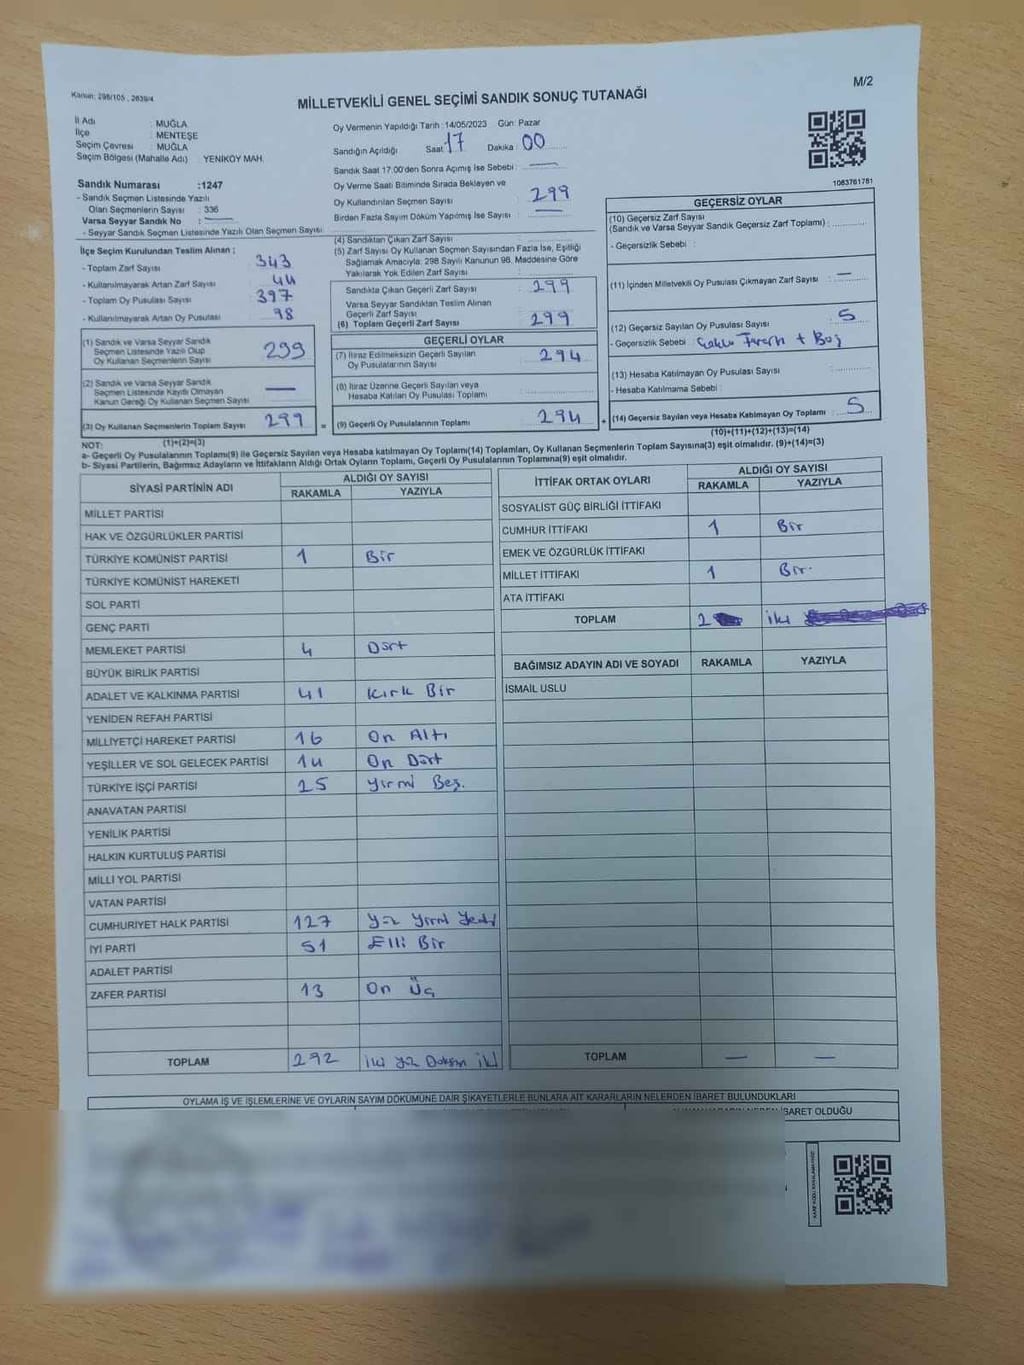 Kanun: 298/105, 2839/4
M/2
MİLLETVEKİLİ GENEL SEÇİMİ SANDIK SONUÇ TUTANAĞI
İl Adı : MUĞLA
İlçe : MENTEŞE
Seçim Çevresi : MUĞLA
Seçim Bölgesi (Mahalle Adı) : YENİKÖY MAH.
Sandık Numarası :1247
- Sandık Seçmen Listesinde Yazılı
Olan Seçmenlerin Sayısı : 336
Varsa Seyyar Sandık No : —
- Seyyar Sandık Seçmen Listesinde Yazılı Olan Seçmen Sayısı :
Oy Vermenin Yapıldığı Tarih : 14/05/2023 Gün: Pazar
Sandığın Açıldığı Saat 17 Dakika : 00
Sandık Saat 17:00'den Sonra Açılmış İse Sebebi : —
Oy Verme Saati Bitiminde Sırada Bekleyen ve
Oy Kullandırılan Seçmen Sayısı : 299
Birden Fazla Sayım Döküm Yapılmış İse Sayısı : —
1083761781
İlçe Seçim Kurulundan Teslim Alınan ;
- Toplam Zarf Sayısı 343
- Kullanılmayarak Artan Zarf Sayısı 44
- Toplam Oy Pusulası Sayısı 397
- Kullanılmayarak Artan Oy Pusulası 98
(1) Sandık ve Varsa Seyyar Sandık
Seçmen Listesinde Yazılı Olup
Oy Kullanan Seçmenlerin Sayısı 299
(2) Sandık ve Varsa Seyyar Sandık
Seçmen Listesinde Kayıtlı Olmayan
Kanun Gereği Oy Kullanan Seçmen Sayısı —
(3) Oy Kullanan Seçmenlerin Toplam Sayısı 299
(1)+(2)=(3)
(4) Sandıktan Çıkan Zarf Sayısı :
(5) Zarf Sayısı Oy Kullanan Seçmen Sayısından Fazla İse, Eşitliği
Sağlamak Amacıyla; 298 Sayılı Kanunun 98. Maddesine Göre
Yakılarak Yok Edilen Zarf Sayısı :
Sandıkta Çıkan Geçerli Zarf Sayısı : 299
Varsa Seyyar Sandıktan Teslim Alınan
Geçerli Zarf Sayısı :
(6) Toplam Geçerli Zarf Sayısı : 299
GEÇERLİ OYLAR
(7) İtiraz Edilmeksizin Geçerli Sayılan
Oy Pusulalarının Sayısı : 294
(8) İtiraz Üzerine Geçerli Sayılan veya
Hesaba Katılan Oy Pusulası Toplamı :
= (9) Geçerli Oy Pusulalarının Toplamı : 294
GEÇERSİZ OYLAR
(10) Geçersiz Zarf Sayısı
(Sandık ve Varsa Seyyar Sandık Geçersiz Zarf Toplamı) :
- Geçersizlik Sebebi :
(11) İçinden Milletvekili Oy Pusulası Çıkmayan Zarf Sayısı : —
(12) Geçersiz Sayılan Oy Pusulası Sayısı : 5
- Geçersizlik Sebebi : Tercih + Boş
(13) Hesaba Katılmayan Oy Pusulası Sayısı :
- Hesaba Katılmama Sebebi :
+ (14) Geçersiz Sayılan veya Hesaba Katılmayan Oy Toplamı : 5
(10)+(11)+(12)+(13)=(14)
NOT:
a- Geçerli Oy Pusulalarının Toplamı(9) ile Geçersiz Sayılan veya Hesaba katılmayan Oy Toplamı(14) Toplamları, Oy Kullanan Seçmenlerin Toplam Sayısına(3) eşit olmalıdır. (9)+(14)=(3)
b- Siyasi Partilerin, Bağımsız Adayların ve İttifakların Aldığı Ortak Oyların Toplamı, Geçerli Oy Pusulalarının Toplamına(9) eşit olmalıdır.
SİYASİ PARTİNİN ADI ALDIĞI OY SAYISI
RAKAMLA YAZIYLA
MİLLET PARTİSİ
HAK VE ÖZGÜRLÜKLER PARTİSİ
TÜRKİYE KOMÜNİST PARTİSİ 1 Bir
TÜRKİYE KOMÜNİST HAREKETİ
SOL PARTİ
GENÇ PARTİ
MEMLEKET PARTİSİ 4 Dört
BÜYÜK BİRLİK PARTİSİ
ADALET VE KALKINMA PARTİSİ 41 Kırk Bir
YENİDEN REFAH PARTİSİ
MİLLİYETÇİ HAREKET PARTİSİ 16 On Altı
YEŞİLLER VE SOL GELECEK PARTİSİ 14 On Dört
TÜRKİYE İŞÇİ PARTİSİ 25 Yirmi Beş.
ANAVATAN PARTİSİ
YENİLİK PARTİSİ
HALKIN KURTULUŞ PARTİSİ
MİLLİ YOL PARTİSİ
VATAN PARTİSİ
CUMHURİYET HALK PARTİSİ 127 Yüz Yirmi Yedi
İYİ PARTİ 51 Elli Bir
ADALET PARTİSİ
ZAFER PARTİSİ 13 On Üç
TOPLAM 292 İki Yüz Doksan İki
İTTİFAK ORTAK OYLARI ALDIĞI OY SAYISI
RAKAMLA YAZIYLA
SOSYALİST GÜÇ BİRLİĞİ İTTİFAKI
CUMHUR İTTİFAKI 1 Bir
EMEK VE ÖZGÜRLÜK İTTİFAKI
MİLLET İTTİFAKI 1 Bir.
ATA İTTİFAKI
TOPLAM 2 iki
BAĞIMSIZ ADAYIN ADI VE SOYADI RAKAMLA YAZIYLA
İSMAİL USLU
TOPLAM — —
OYLAMA İŞ VE İŞLEMLERİNE VE OYLARIN SAYIM DÖKÜMÜNE DAİR ŞİKAYETLERLE BUNLARA AİT KARARLARIN NELERDEN İBARET BULUNDUKLARI
İBARET OLDUĞU